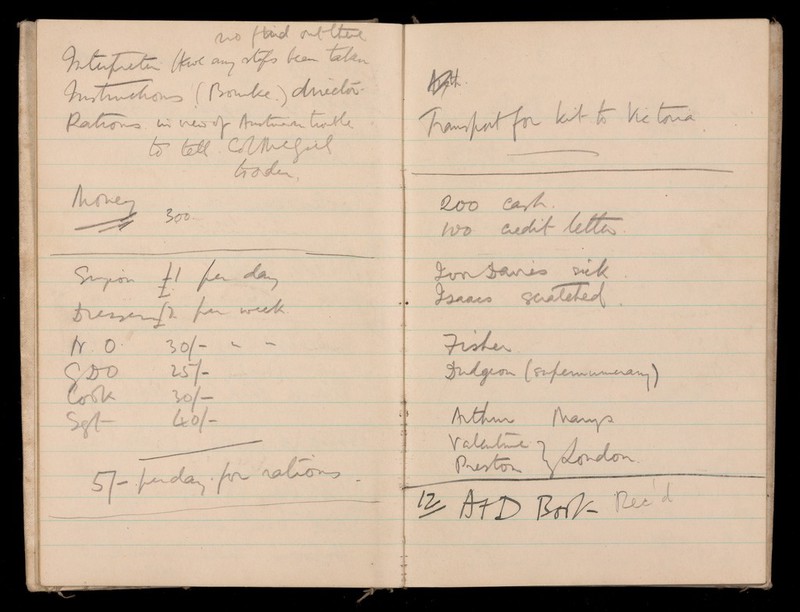 no find out there
Interpreter Have any steps been taken
Instructions (Bourke) director
Rations in view of Austrian trouble
to tell Col
Money
300
Surgeon £1 per day
Dresser £2 per week
N. O. 30/- " "
GDO 25/-
Cook 30/-
Sgt 40/-
5/- per day for rations.
Transport for kit to Victoria
200 cash.
100 credit letter
Ivor Davies sick
Isaacs scratched.
Fisher
Dudgeon (supernumerary)
Arthur
Valentine } London
Preston
12 A+D Book Rec'd